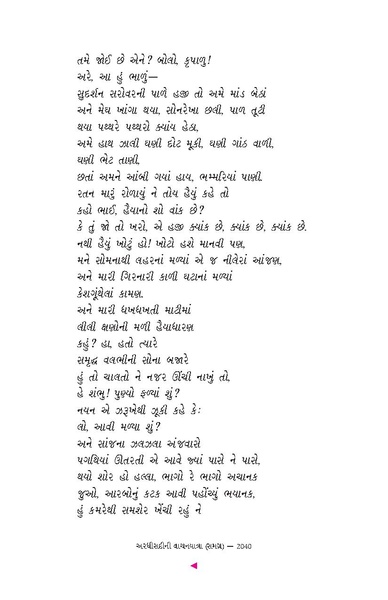 તમે જોઈ છે એને? બોલો, કૃપાળુ!
અરે, આ હું ભાળું—
સુદર્શન સરોવરની પાળે હજી તો અમે માંડ બેઠાં
અને મેઘ ખાંગા થયા, સોનરેખા છલી, પાળ તૂટી
થયા પથ્થરે પથ્થરો ક્યાંય હેઠા,
અમે હાથ ઝાલી ઘણી દોટ મૂકી, ઘણી ગાંઠ વાળી,
ઘણી ભેટ તાણી,
છતાં અમને આંબી ગયાં હાય, ભમ્મરિયાં પાણી.
રતન મારું રોળાયું ને તોય હૈયું કહે તો
કહો ભાઈ, હૈયાનો શો વાંક છે?
કે તું જો તો ખરો, એ હજી ક્યાંક છે, ક્યાંક છે, ક્યાંક છે.
નથી હૈયું ખોટું હો! ખોટો હશે માનવી પણ,
મને સોમનાથી લહરનાં મળ્યાં એ જ નીલેરાં આંજણ,
અને મારી ગિરનારી કાળી ઘટાનાં મળ્યાં
કેશગૂંથેલાં કામણ.
અને મારી ધખધખતી માટીમાં
લીલી ક્ષણોની મળી હૈયાધારણ
કહું? હા, હતો ત્યારે
સમૃદ્ધ વલભીની સોના બજારે
હું તો ચાલતો ને નજર ઊંચી નાખું તો,
હે શંભુ! પુણ્યો ફળ્યાં શું?
નયન એ ઝરૂખેથી ઝૂકી કહે કેઃ
લો, આવી મળ્યા શું?
અને સાંજના ઝલઝલા અંજવાસે
પગથિયાં ઊતરતી એ આવે જ્યાં પાસે ને પાસે,
થયો શોર હો હલ્લા, ભાગો રે ભાગો અચાનક
જુઓ, આરબોનું કટક આવી પહોંચ્યું ભયાનક,
હું કમરેથી સમશેર ખેંચી રહું ને
અરધીસદીની વાચનયાત્રા (સમગ્ર) — 2040